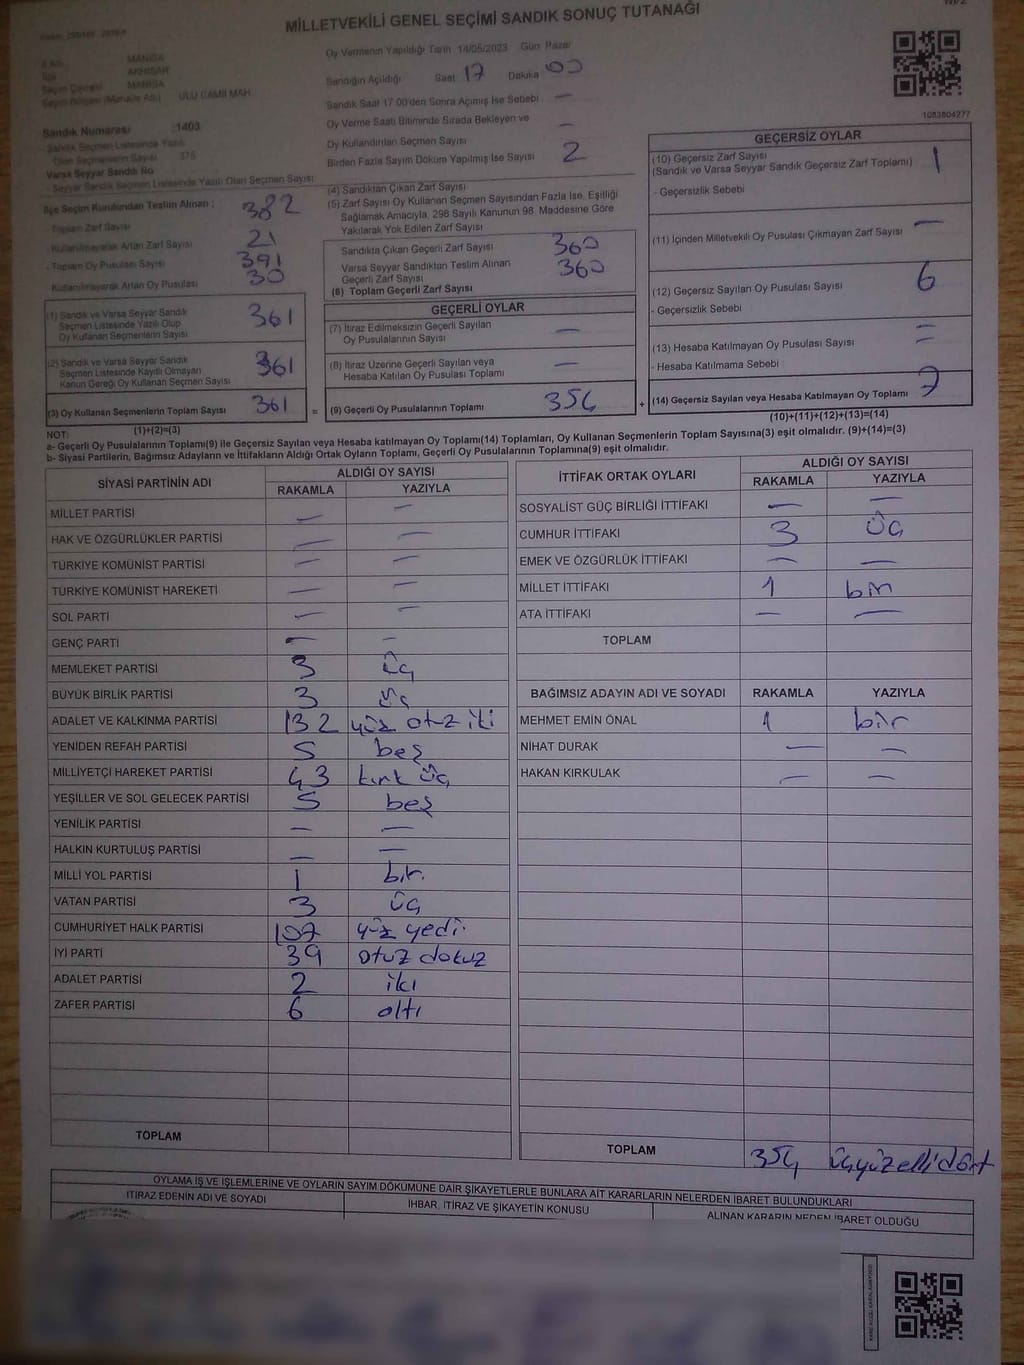 MİLLETVEKİLİ GENEL SEÇİMİ SANDIK SONUÇ TUTANAĞI
MANİSA
AKHİSAR
MANİSA
Seçim Bölgesi (Mahalle Adı) ULU CAMİİ MAH.
Sandık Numarası :1403
- Sandık Seçmen Listesinde Yazılı
Olan Seçmenlerin Sayısı 375
Varsa Seyyar Sandık No
- Seyyar Sandık Seçmen Listesinde Yazılı Olan Seçmen Sayısı:
İlçe Seçim Kurulundan Teslim Alınan :
- Toplam Zarf Sayısı 382
- Kullanılmayarak Artan Zarf Sayısı 21
- Toplam Oy Pusulası Sayısı 391
- Kullanılmayarak Artan Oy Pusulası 30
(1) Sandık ve Varsa Seyyar Sandık
Seçmen Listesinde Yazılı Olup
Oy Kullanan Seçmenlerin Sayısı 361
(2) Sandık ve Varsa Seyyar Sandık
Seçmen Listesinde Kayıtlı Olmayan
Kanun Gereği Oy Kullanan Seçmen Sayısı 361
(3) Oy Kullanan Seçmenlerin Toplam Sayısı 361
(1)+(2)=(3)
Oy Vermenin Yapıldığı Tarih 14/05/2023 Gün: Pazar
Sandığın Açıldığı Saat 17 Dakika 00
Sandık Saat 17:00'den Sonra Açılmış İse Sebebi : —
Oy Verme Saati Bitiminde Sırada Bekleyen ve
Oy Kullandırılan Seçmen Sayısı —
Birden Fazla Sayım Döküm Yapılmış İse Sayısı 2
(4) Sandıktan Çıkan Zarf Sayısı
(5) Zarf Sayısı Oy Kullanan Seçmen Sayısından Fazla İse, Eşitliği
Sağlamak Amacıyla, 298 Sayılı Kanunun 98. Maddesine Göre
Yakılarak Yok Edilen Zarf Sayısı
Sandıkta Çıkan Geçerli Zarf Sayısı 360
Varsa Seyyar Sandıktan Teslim Alınan
Geçerli Zarf Sayısı 360
(6) Toplam Geçerli Zarf Sayısı
GEÇERLİ OYLAR
(7) İtiraz Edilmeksizin Geçerli Sayılan
Oy Pusulalarının Sayısı —
(8) İtiraz Üzerine Geçerli Sayılan veya
Hesaba Katılan Oy Pusulası Toplamı —
= (9) Geçerli Oy Pusulalarının Toplamı 354 +
1083804277
GEÇERSİZ OYLAR
(10) Geçersiz Zarf Sayısı
(Sandık ve Varsa Seyyar Sandık Geçersiz Zarf Toplamı) 1
- Geçersizlik Sebebi
(11) İçinden Milletvekili Oy Pusulası Çıkmayan Zarf Sayısı —
(12) Geçersiz Sayılan Oy Pusulası Sayısı 6
- Geçersizlik Sebebi
(13) Hesaba Katılmayan Oy Pusulası Sayısı
- Hesaba Katılmama Sebebi :
(14) Geçersiz Sayılan veya Hesaba Katılmayan Oy Toplamı 7
(10)+(11)+(12)+(13)=(14)
NOT:
a- Geçerli Oy Pusulalarının Toplamı(9) ile Geçersiz Sayılan veya Hesaba katılmayan Oy Toplamı(14) Toplamları, Oy Kullanan Seçmenlerin Toplam Sayısına(3) eşit olmalıdır. (9)+(14)=(3)
b- Siyasi Partilerin, Bağımsız Adayların ve İttifakların Aldığı Ortak Oyların Toplamı, Geçerli Oy Pusulalarının Toplamına(9) eşit olmalıdır.
SİYASİ PARTİNİN ADI ALDIĞI OY SAYISI
RAKAMLA YAZIYLA
MİLLET PARTİSİ — —
HAK VE ÖZGÜRLÜKLER PARTİSİ — —
TÜRKİYE KOMÜNİST PARTİSİ — —
TÜRKİYE KOMÜNİST HAREKETİ — —
SOL PARTİ — —
GENÇ PARTİ — —
MEMLEKET PARTİSİ 3 üç
BÜYÜK BİRLİK PARTİSİ 3 üç
ADALET VE KALKINMA PARTİSİ 132 yüz otuz iki
YENİDEN REFAH PARTİSİ 5 beş
MİLLİYETÇİ HAREKET PARTİSİ 43 kırk üç
YEŞİLLER VE SOL GELECEK PARTİSİ 5 beş
YENİLİK PARTİSİ — —
HALKIN KURTULUŞ PARTİSİ — —
MİLLİ YOL PARTİSİ 1 bir.
VATAN PARTİSİ 3 üç
CUMHURİYET HALK PARTİSİ 107 yüz yedi.
İYİ PARTİ 39 otuz dokuz
ADALET PARTİSİ 2 iki
ZAFER PARTİSİ 6 altı
TOPLAM
İTTİFAK ORTAK OYLARI ALDIĞI OY SAYISI
RAKAMLA YAZIYLA
SOSYALİST GÜÇ BİRLİĞİ İTTİFAKI — —
CUMHUR İTTİFAKI 3 üç
EMEK VE ÖZGÜRLÜK İTTİFAKI — —
MİLLET İTTİFAKI 1 bir
ATA İTTİFAKI — —
TOPLAM
BAĞIMSIZ ADAYIN ADI VE SOYADI RAKAMLA YAZIYLA
MEHMET EMİN ÖNAL 1 bir
NİHAT DURAK — —
HAKAN KIRKULAK — —
TOPLAM 354 üçyüzellidört
OYLAMA İŞ VE İŞLEMLERİNE VE OYLARIN SAYIM DÖKÜMÜNE DAİR ŞİKAYETLERLE BUNLARA AİT KARARLARIN NELERDEN İBARET BULUNDUKLARI
İTİRAZ EDENİN ADI VE SOYADI İHBAR, İTİRAZ VE ŞİKAYETİN KONUSU ALINAN KARARIN NEDEN İBARET OLDUĞU